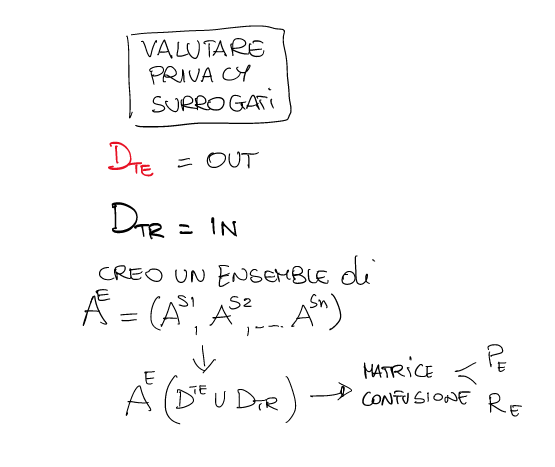 VALUTARE
PRIVACY
SURROGATi
D_TE = OUT
D_TR = IN
CREO UN ENSEMBLE di
A^E = (A^S1, A^S2, .... A^Sn)
↓
A^E (D^TE ∪ D_TR) → MATRICE CONFUSIONE < P_E R_E